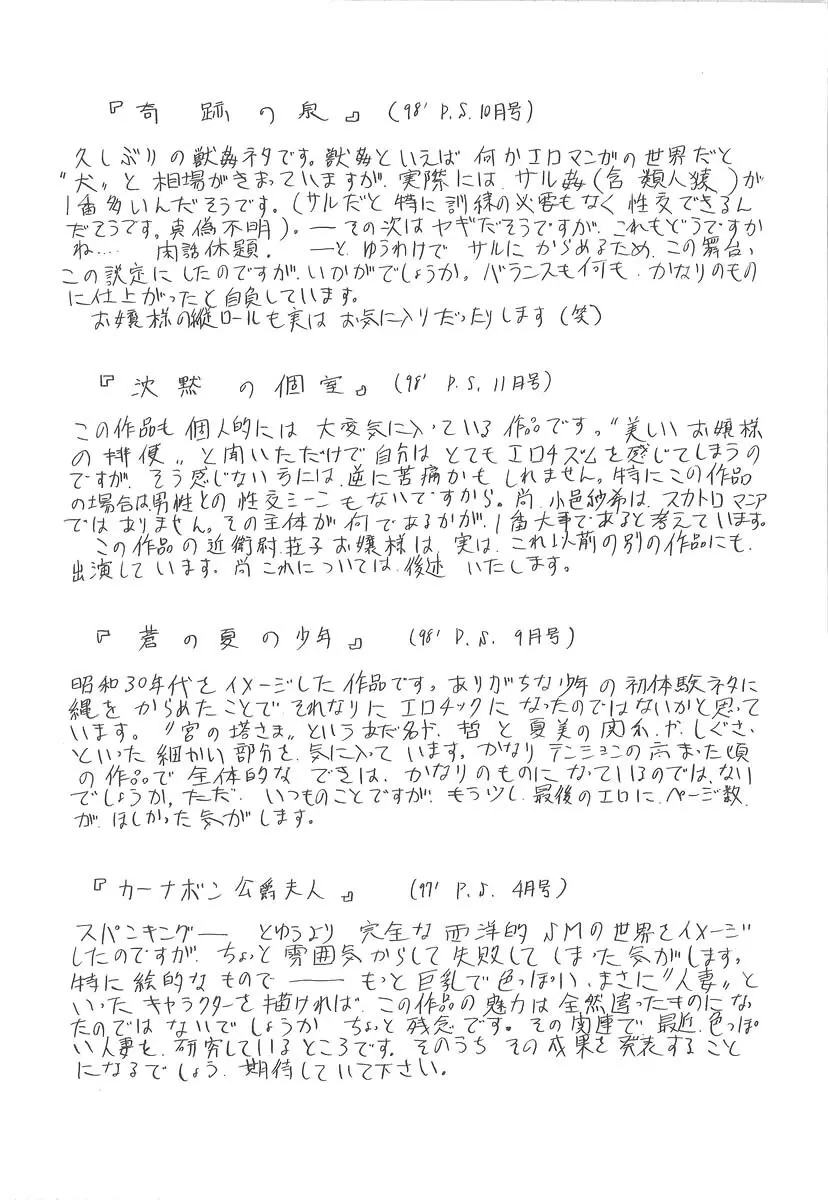 『奇跡の泉』(98' P.S.10月号)
久しぶりの獣姦ネタです。獣姦といえば何かエロマンガの世界だと
"犬"と相場がきまっていますが、実際には、サル姦(含 類人猿)が
1番多いんだそうです。(サルだと特に訓練の必要もなく性交できるん
だそうです。真偽不明)。―その次はヤギだそうですが、これもどうですか
ね…… 閑話休題。 ―と、ゆうわけで サルに からめるため、この舞台、
この設定にしたのですが、いかがでしょうか。バランスも何も、かなりのもの
に仕上がったと自負しています。
お嬢様の縦ロールも実は お気に入りだったりします(笑)
『沈黙の個室』(98' P.S.11月号)
この作品も 個人的には 大変気に入っている 作品です。"美しいお嬢様
の排便"と聞いただけで自分は とてもエロチズムを感じてしまうの
ですが、そう感じない方には、逆に苦痛かもしれません。特にこの作品
の場合は男性との性交シーンもないですから。尚、小邑紗希は、スカトロマニア
ではありません。その主体が何であるかが、1番大事であると考えています。
この作品の近衛尉荘子お嬢様は、実は、これ以前の別の作品にも、
出演しています。尚これについては、後述 いたします。
『蒼の夏の少年』 (98' P.S. 9月号)
昭和30年代をイメージした作品です。ありがちな少年の初体験ネタに
縄をからめたことで それなりに エロチックに なったのではないかと思って
います。"宮の塔さま"というあだ名や、哲と夏美の関係や、しぐさ、
といった細かい部分を、気に入って います。かなり テンションの高まった頃
の作品で 全体的な できは、かなりのものに なっているのでは、ない
でしょうか。ただ、いつものことですが、もう少し、最後のエロに、ページ数
が、ほしかった気がします。
『カーナボン公爵夫人』 (97' P.S. 4月号)
スパンキング― とゆうより 完全な西洋的SMの世界をイメージ
したのですが、ちょっと雰囲気からして失敗してしまった気がします。
特に絵的なもので ―― もっと巨乳で色っぽい、まさに"人妻"と
いったキャラクターを描ければ、この作品の魅力は全然違ったものにな
たのではないでしょうか ちょっと残念です。その関連で、最近、色っぽ
い人妻を、研究しているところです。そのうち その成果を発表すること
になるでしょう、期待していて下さい。